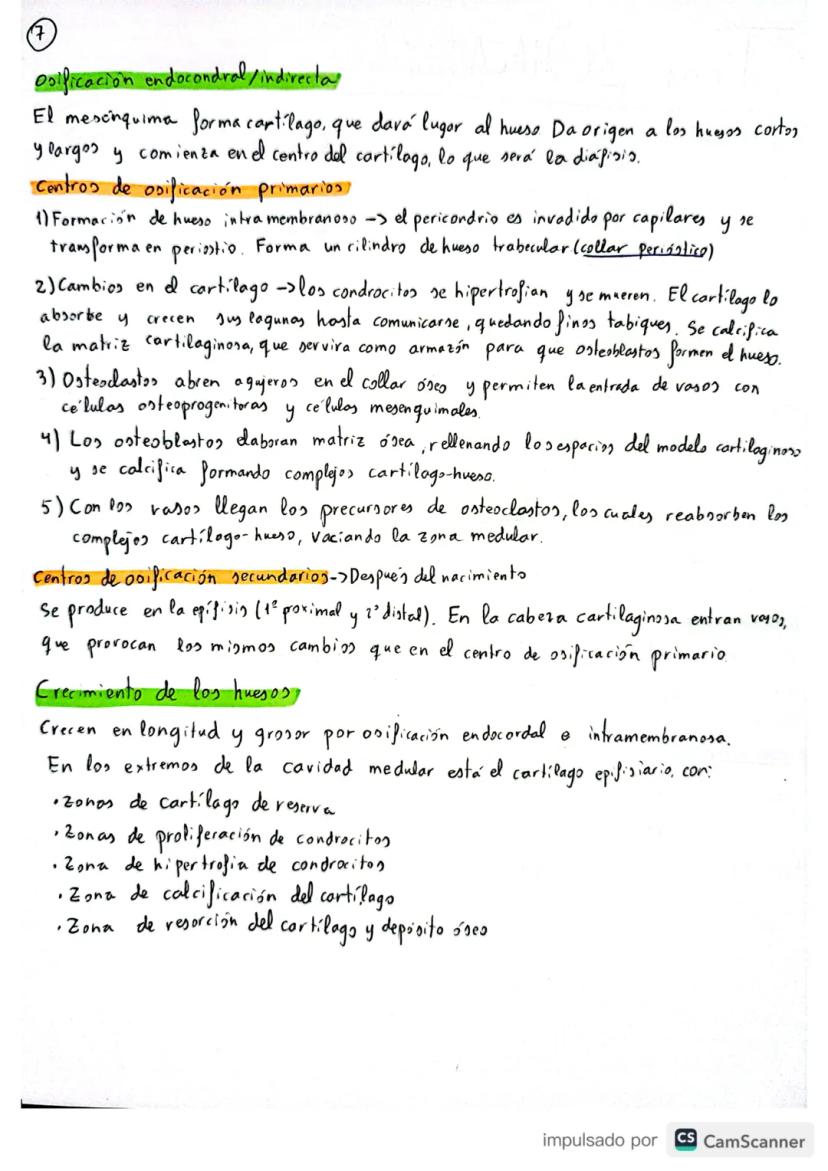 7
Osificación endocondral/indirecta
El mesénquima forma cartílago, que dará lugar al hueso Da origen a los huesos cortos
y largos y comienza en el centro del cartílago, lo que será la diáfisis.
Centros de osificación primarios
1) Formación de hueso intramembranoso -> el pericondrio es invadido por capilares y se
transforma en periostio. Forma un cilindro de hueso trabecular (collar perióstico)
2) Cambios en el cartílago -> los condrocitos se hipertrofian y se mueren. El cartílago lo
absorbe y crecen sus lagunas hasta comunicarse, quedando finos tabiques. Se calcifica
la matriz cartilaginosa, que servira como armazón para que osteoblastos formen el hueso.
3) Osteoclastos abren agujeros en el collar óseo y permiten la entrada de vasos con
células osteoprogenitoras y células mesenquimales.
4) Los osteoblastos elaboran matriz ósea, rellenando los espacios del modelo cartilaginoso
y se calcifica formando complejos cartílago-hueso.
5) Con los vasos llegan los precursores de osteoclastos, los cuales reabsorben los
complejos cartílago-hueso, vaciando la zona medular.
Centros de osificación secundarios -> Después del nacimiento
Se produce en la epífisis (1º proximal y 2º distal). En la cabeza cartilaginosa entran vasos,
que provocan los mismos cambios que en el centro de osificación primario
Crecimiento de los huesos
Crecen en longitud y grosor por osificación endocordal e intramembranosa.
En los extremos de la cavidad medular está el cartílago epifisiario, con:
· Zonas de cartílago de reserva
· Zonas de proliferación de condrocitos
· Zona de hipertrofia de condrocitos
· Zona de calcificación del cartílago
· Zona de resorción del cartílago y depósito óseo
impulsado por CS CamScanner